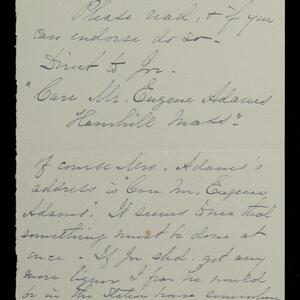 Please read, & if you
can endorse do so-
Direct to Jon.
"Care Mr. Eugene Adams
Mass".
Of course Mrs. Adams's
address is "Care Mr. Eugene
Adams". It seems to me that
something must be done at
once - If Jon shd. get any
more liquor I fear he would
be in the Station house somewhere